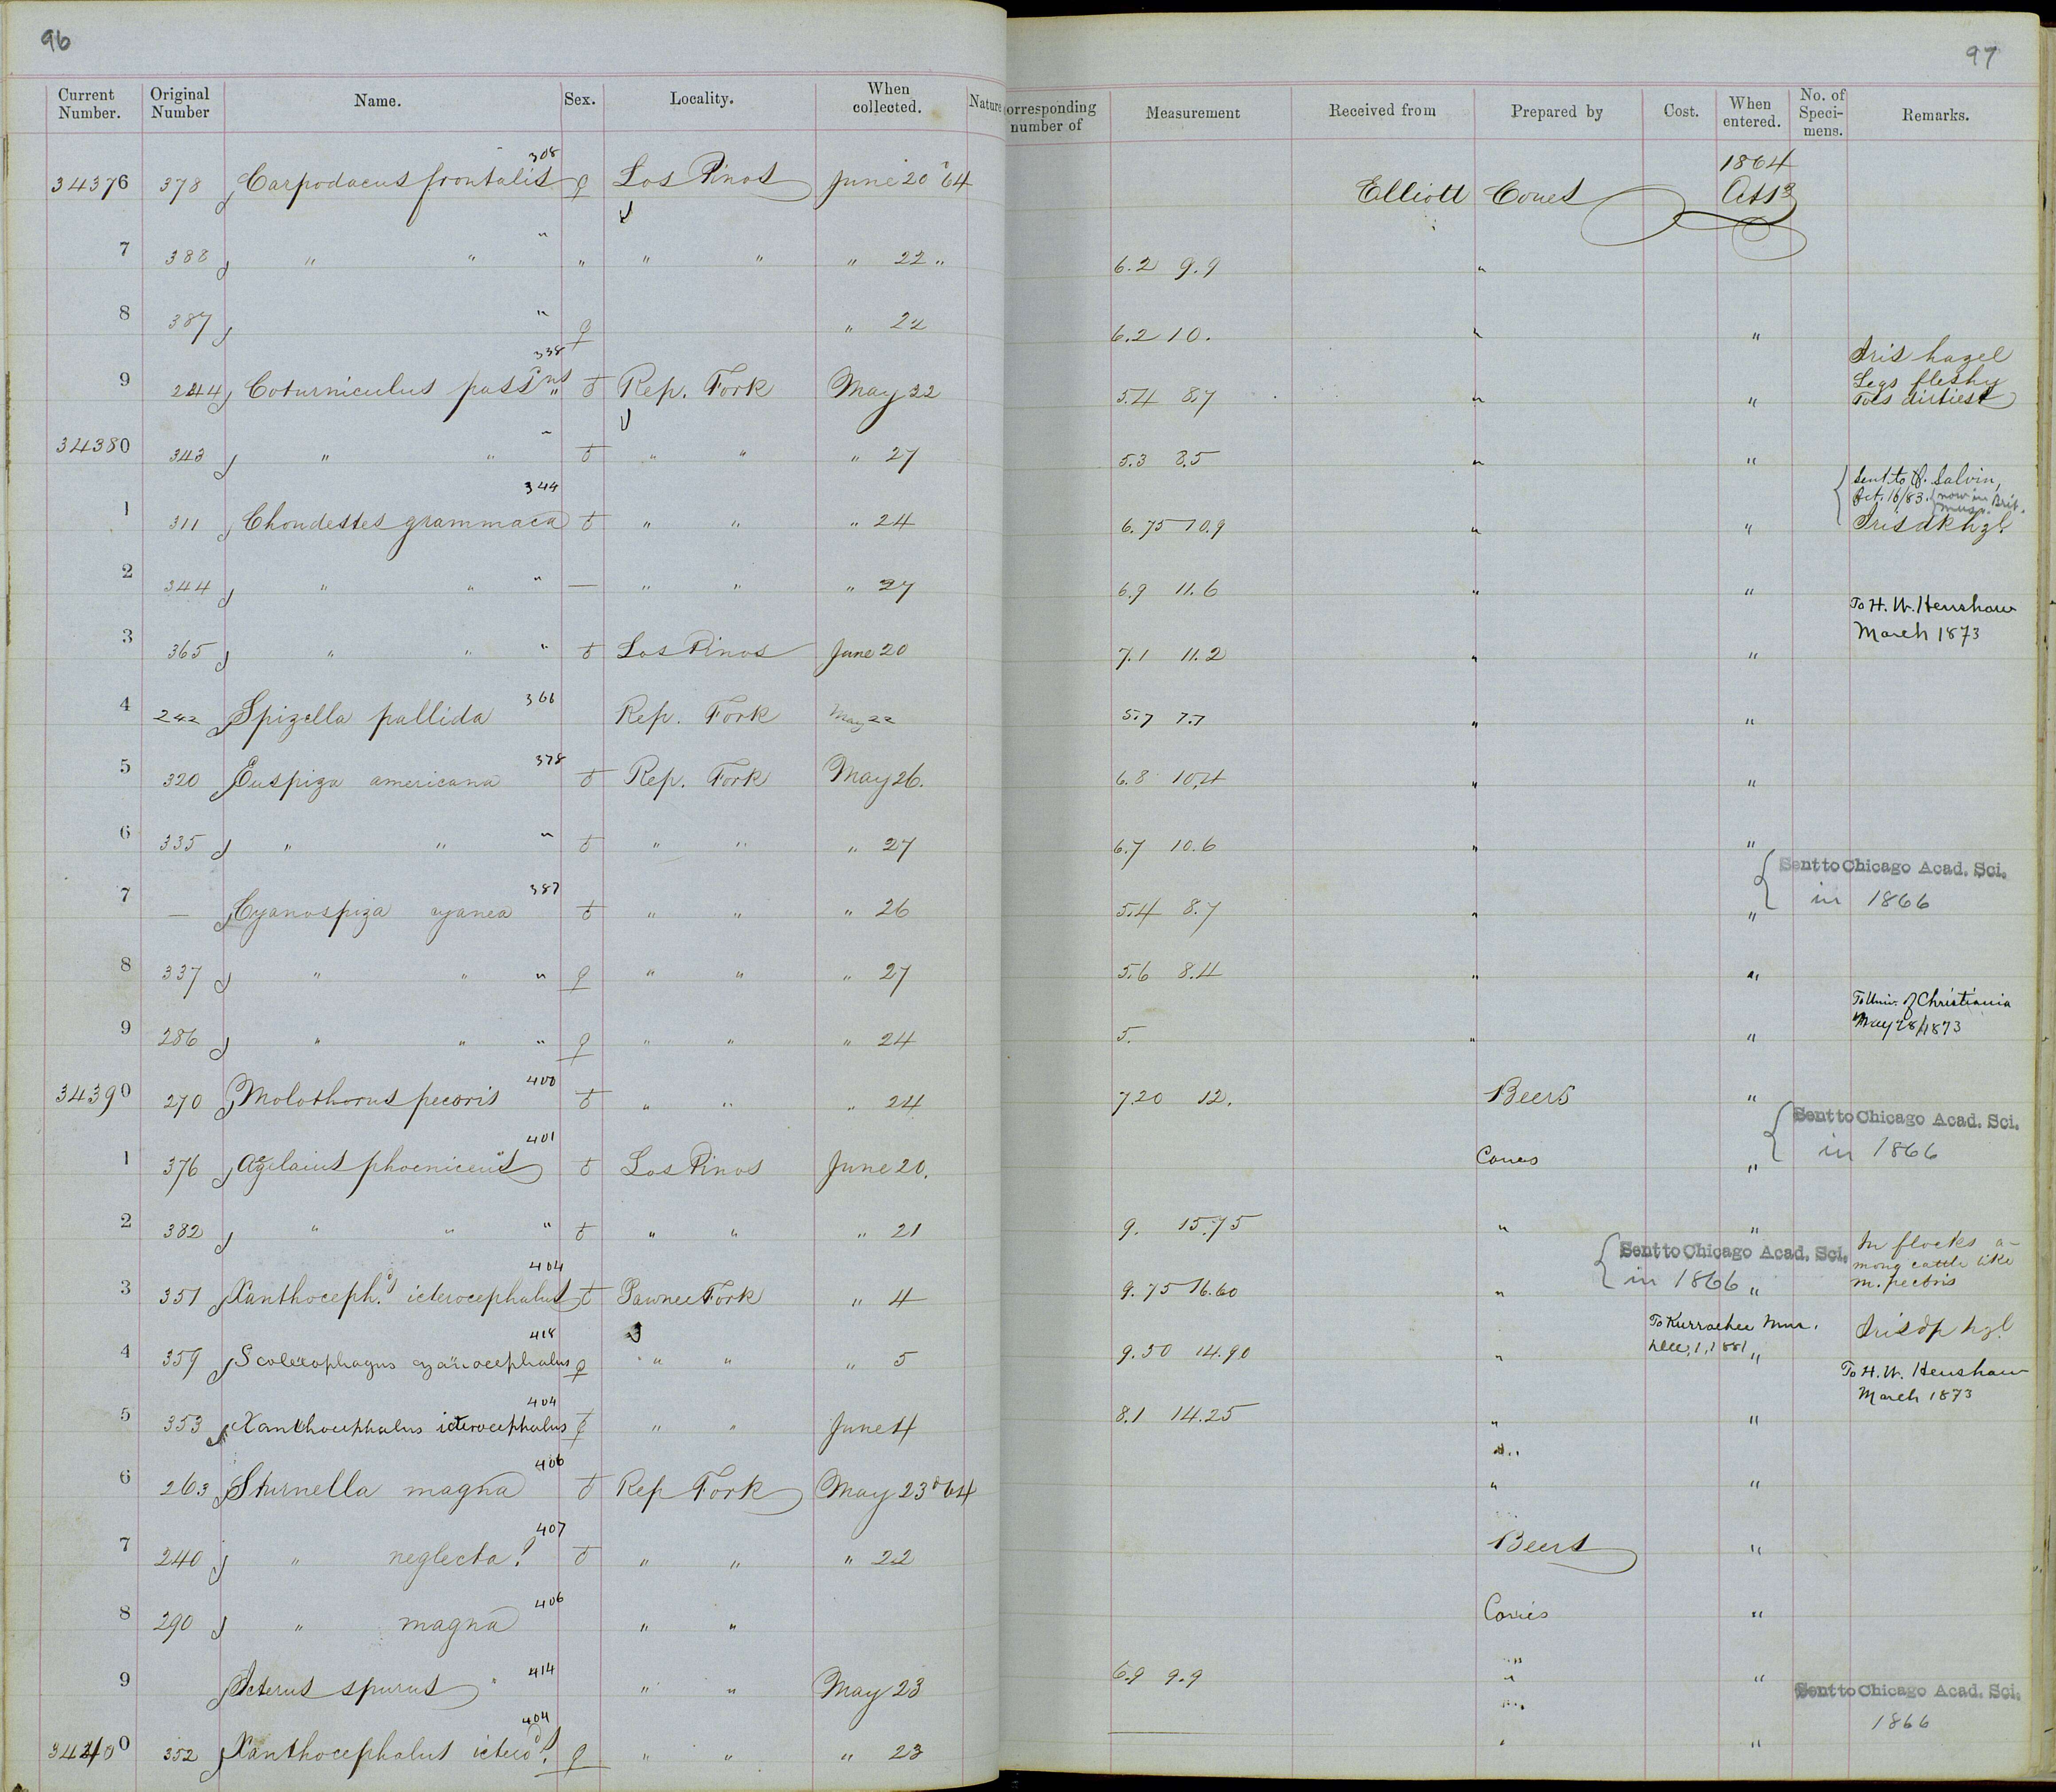 96
Current Number. Original Number Name. Sex. Locality. When collected. Nature
308
34376 378 Carpodacus frontalis ♀ Los Pinos June 20 '64
7 388 " " " " " " " 22 "
8 387 " ♀ " 22
338
9 244 Coturniculus pass.ns " ♂ Rep. Fork May 22
34380 343 " " " ♂ " " " 27
344
1 311 Chondestes grammaca ♂ " " " 24
2 344 " " " — " " " 27
3 365 " " " ♂ Los Pinos June 20
4 242 Spizella pallida 366 Rep. Fork May 22
5 320 Euspiza americana 378 ♂ Rep. Fork May 26.
6 335 " " " ♂ " " " 27
7 — Cyanospiza cyanea 387 ♂ " " " 26
8 337 " " " ♀ " " " 27
9 286 " " " ♀ " " " 24
34390 270 Molothorus pecoris 400 ♂ " " " 24
401
1 376 Agelaius phoeniceus ♂ Los Pinos June 20.
2 382 " " " ♂ " " " 21
404
3 351 Xanthoceph.s icterocephalus ♂ Pawnee Fork " 4
418
4 359 Scolecophagus cyanocephalus ♀ " " " 5
404
5 353 Xanthocephalus icterocephalus ♀ " " June 4
406
6 263 Sturnella magna ♂ Rep Fork May 23d 64
407
7 240 " neglecta? ♂ " " " 22
406
8 290 " magna " "
9 Icterus spurus " 414 " " May 23
404
34400 352 Xanthocephalus ictero ♀ " " " 23
97
orresponding number of Measurement Received from Prepared by Cost. When entered. No. of Speci-mens. Remarks.
1864
Elliott Coues
6.2 9.9 "
6.2 10. " "
Iris hazel
Legs fleshy
Toes dirtiest
5.4 8.7 " "
5.3 8.5 " "
Sent to O. Salvin,
Oct. 16/83. (now in Brit. Mus.
6.75 10.9 " " Iris dk hzl.
6.9 11.6 " "
To H. W. Henshaw
March 1873
7.1 11.2 " "
5.7 7.7 " "
6.8 10.4 " "
6.7 10.6 " "
Sent to Chicago Acad. Sci.
in 1866
5.4 8.7 " "
5.6 8.4 " "
To Univ. of Christiania
May 28/1873
5. " "
7.20 12. Beers "
Sent to Chicago Acad. Sci.
in 1866
Coues "
9. 15.75 " "
In flocks a-
mong cattle like
M. pecoris
Sent to Chicago Acad. Sci.
in 1866
9.75 16.60 " "
To Kurrachee Mus.
Dec. 1, 1881
9.50 14.90 " "
To H. W. Henshaw
March 1873
8.1 14.25 " "
" "
Beers "
Coues "
6.9 9.9 " "
Sent to Chicago Acad. Sci.
1866
" "